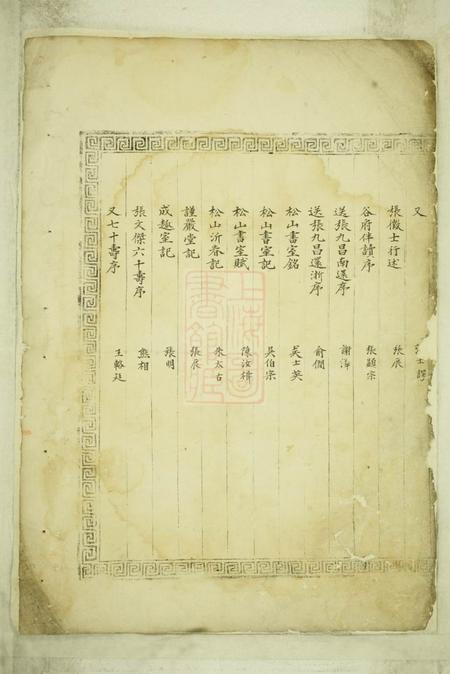 又
張徵士行述 張辰
谷府伴讀序 張顯宗
送張九昌南還序 謝溥
送張九昌還浙序 俞僩
松山書室銘 吳士英
松山書室記 吳伯宗
松山書室賦 陳汝楫
松山沂春記 朱太古
謹嚴堂記 張辰
成趣室記 張明
張文傑六十壽序 熊相
又七十壽序 王轂廷
上海圖書館藏